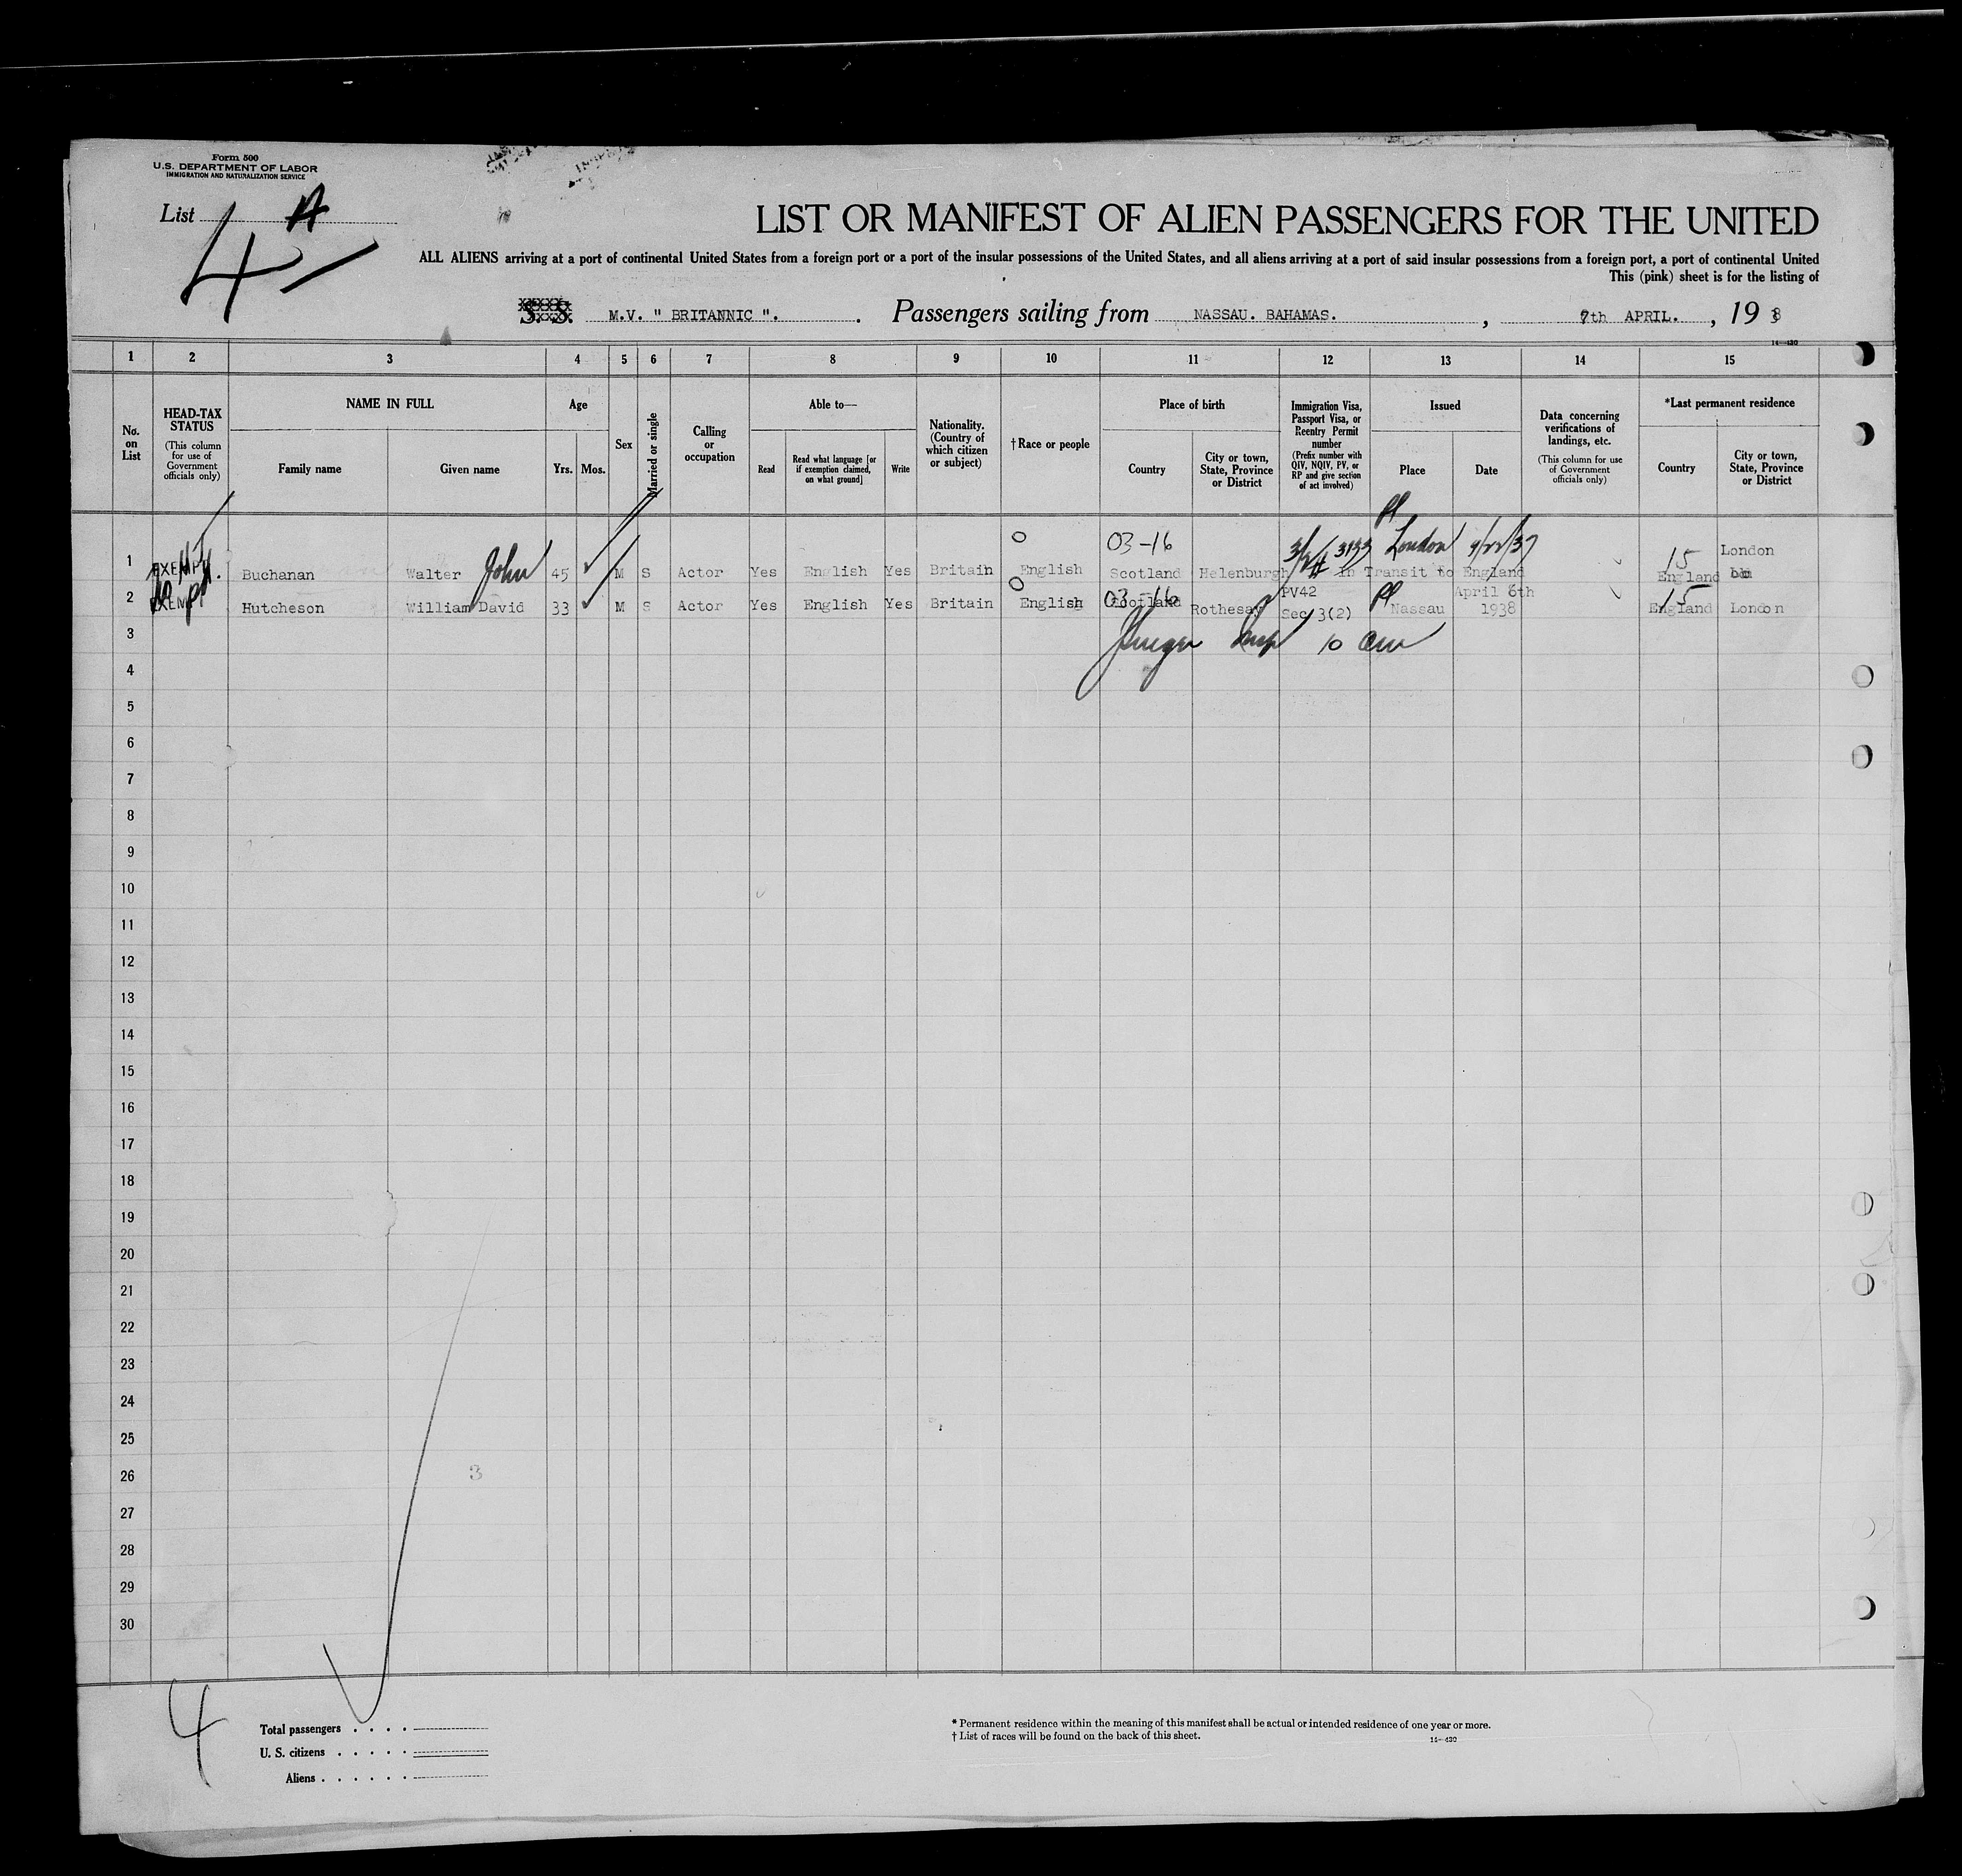 Form 500
U.S. DEPARTMENT OF LABOR
IMMIGRATION AND NATURALIZATION SERVICE
List A
4
LIST OR MANIFEST OF ALIEN PASSENGERS FOR THE UNITED
ALL ALIENS arriving at a port of continental United States from a foreign port or a port of the insular possessions of the United States, and all aliens arriving at a port of said insular possessions from a foreign port, a port of continental United
This (pink) sheet is for the listing of
S. S. M.V. " BRITANNIC ". Passengers sailing from NASSAU. BAHAMAS. , 7th APRIL. , 19 38
14—430
1 2 3 4 5 6 7 8 9 10 11 12 13 14 15
No. on List
HEAD-TAX STATUS
(This column for use of Government officials only)
NAME IN FULL
Family name
Given name
Age
Yrs.
Mos.
Sex
Married or single
Calling or occupation
Able to—
Read
Read what language [or if exemption claimed, on what ground]
Write
Nationality. (Country of which citizen or subject)
†Race or people
Place of birth
Country
City or town, State, Province or District
Immigration Visa, Passport Visa, or Reentry Permit number
(Prefix number with QIV, NQIV, PV, or RP and give section of act involved)
Issued
Place
Date
Data concerning verifications of landings, etc.
(This column for use of Government officials only)
*Last permanent residence
Country
City or town, State, Province or District
03-16 3133 London 9/22/37 15 London
1 EXEMPT Buchanan Walter John 45 M S Actor Yes English Yes Britain English Scotland Helenburgh In Transit to England England
03-16 PV42 April 6th 15
2 EXEMPT Hutcheson William David 33 M S Actor Yes English Yes Britain English Scotland Rothesay Sec 3(2) Nassau 1938 England London
3 10 am
4
5
6
7
8
9
10
11
12
13
14
15
16
17
18
19
20
21
22
23
24
25
26 3
27
28
29
30
4
Total passengers . . . .
U. S. citizens . . . . .
Aliens . . . . . .
* Permanent residence within the meaning of this manifest shall be actual or intended residence of one year or more.
† List of races will be found on the back of this sheet.
14—430